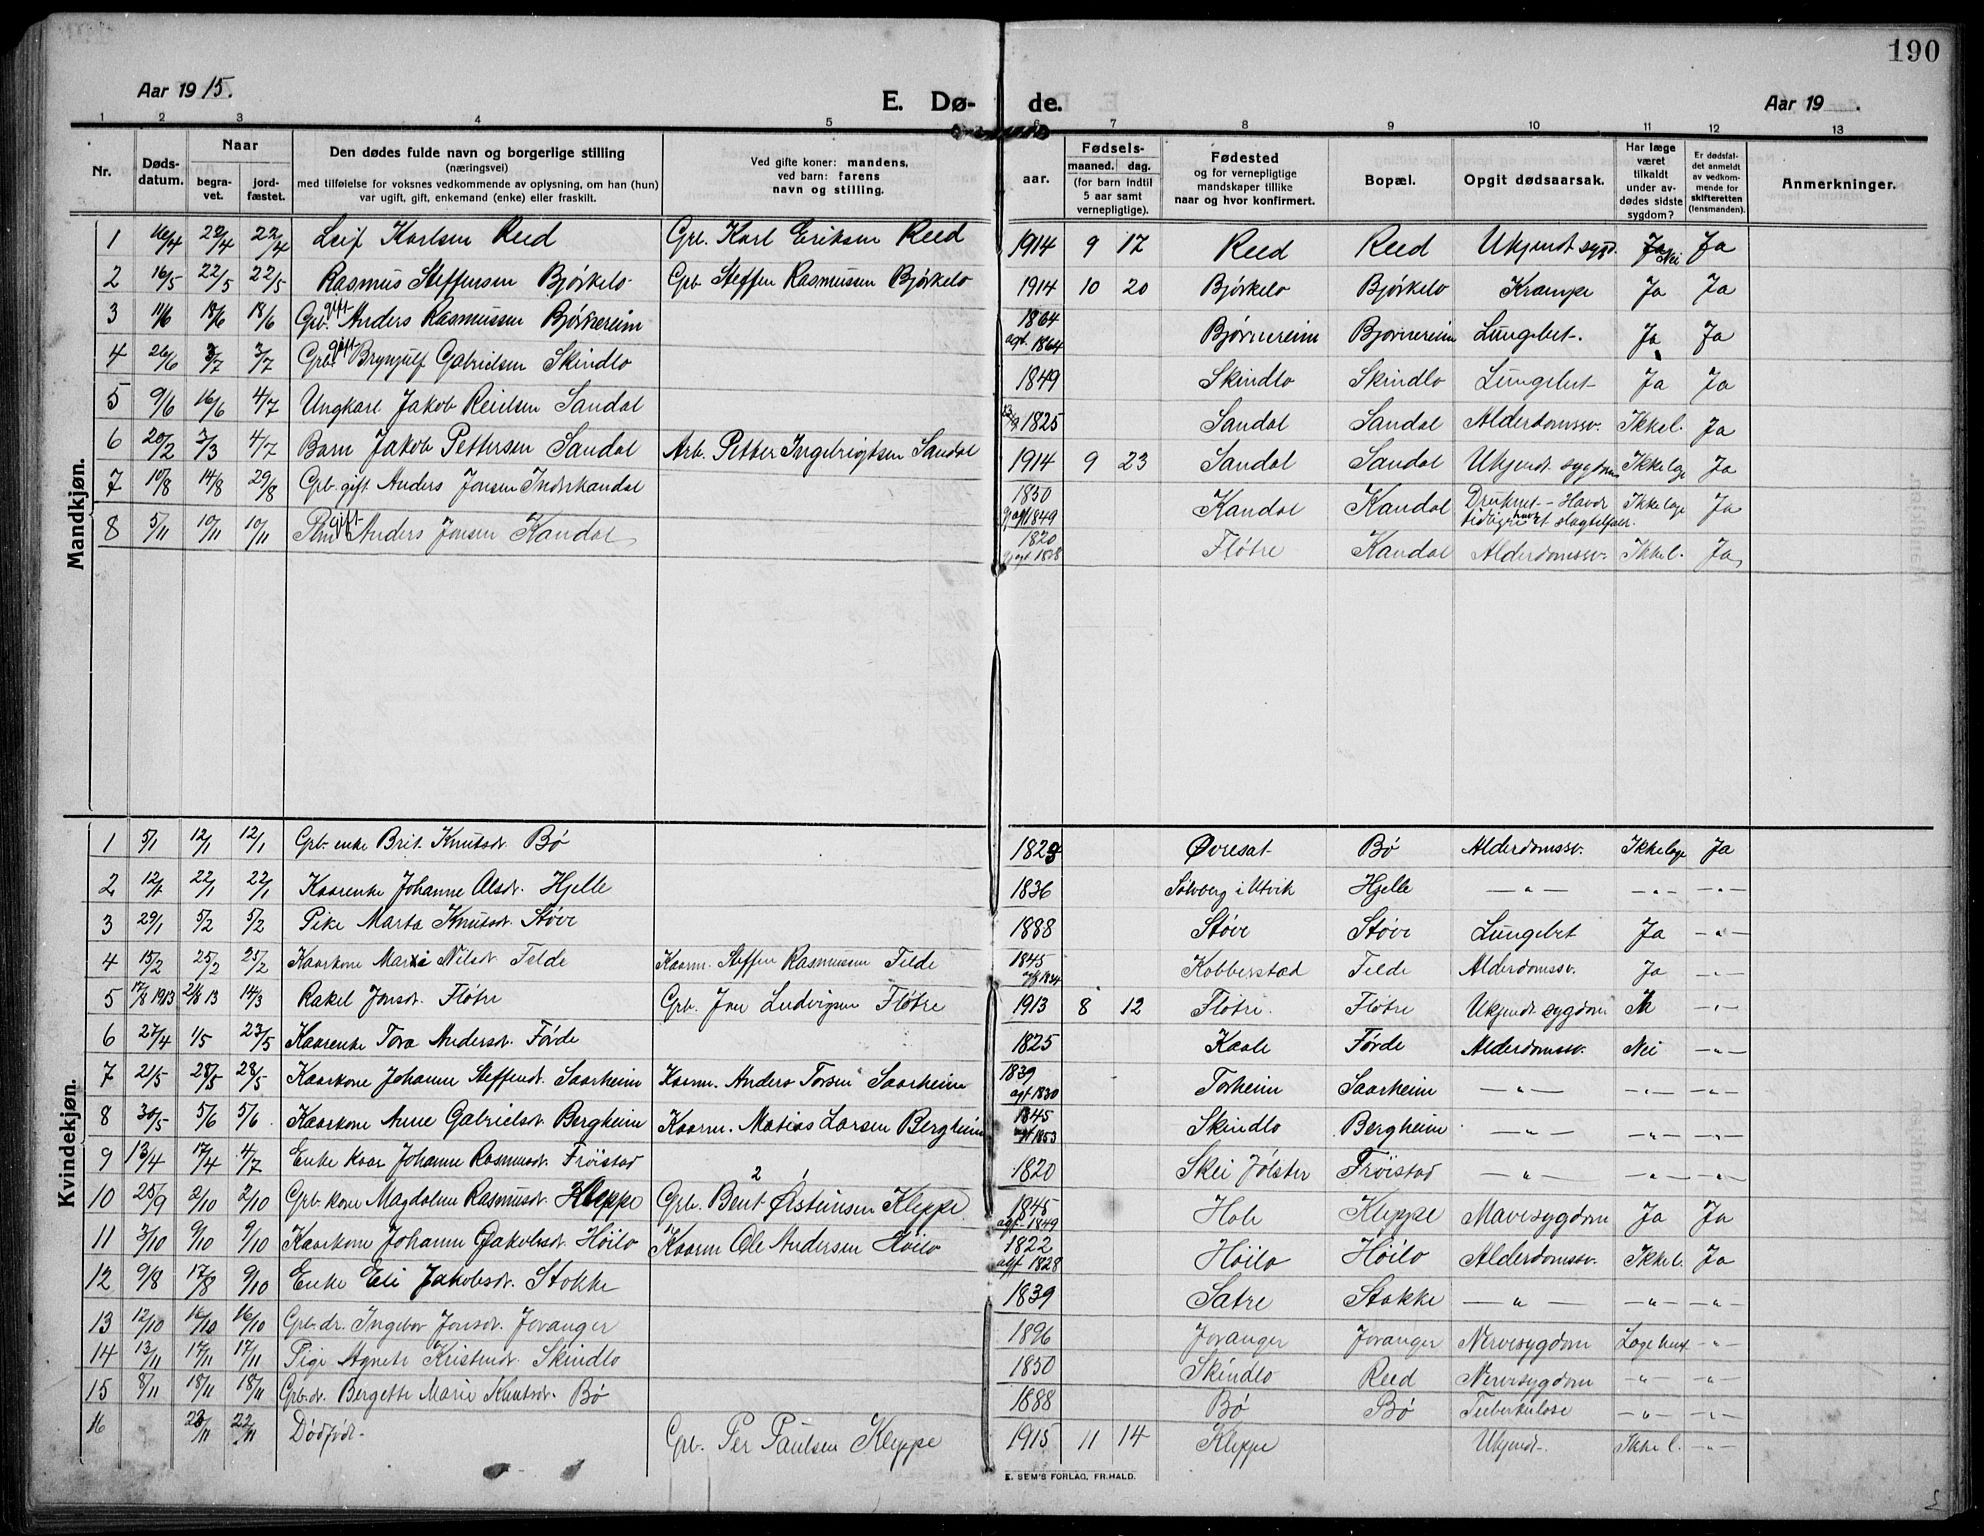 190
Aar 1915.
E. Dø- de.
Aar 19 .
1 2 3 4 5 6 7 8 9 10 11 12 13
Nr. Døds-datum. Naar begra-vet. jord-fæstet.
Den dødes fulde navn og borgerlige stilling
(næringsvei)
med tilføielse for voksnes vedkommende av oplysning, om han (hun)
var ugift, gift, enkemand (enke) eller fraskilt.
Ved gifte koner: mandens,
ved barn: farens
navn og stilling.
Fødsels-
aar. maaned. dag.
(for barn indtil
5 aar samt
vernepligtige).
Fødested
og for vernepligtige
mandskaper tillike
naar og hvor konfirmert.
Bopæl.
Opgit dødsaarsak.
Har læge
været
tilkaldt
under av-
dødes sidste
sygdom?
Er dødsfal-
det anmeldt
av vedkom-
mende for
skifteretten
(lensmanden).
Anmerkninger.
Mandkjøn.
1 16/4 22/4 22/4 Leif Karlsen Reed Grb. Karl Eriksen Reed 1914 9 17 Reed Reed Ukjendt sygd. Nei Ja
2 16/5 22/5 22/5 Rasmus Steffensen Bjørkelo Grb. Steffen Rasmussen Bjørkelo 1914 10 20 Bjørkelo Bjørkelo Krampe Ja Ja
3 11/6 18/6 18/6 Grb. gift Anders Rasmussen Bjørnereim 1864 agt. 1864 Bjørnereim Bjørnereim Lungebet. Ja Ja
4 26/6 3/7 3/7 Grb. gift Brynjulf Gabrielsen Skindlo 1849 Skindlo Skindlo Lungebet Ja Ja
5 9/6 16/6 4/7 Ungkarl Jakob Reielsen Sandal 1825 Sandal Sandal Alderdomssv. Ikke l. Ja
6 20/2 3/3 4/7 Barn Jakob Pettersen Sandal Arb. Petter Ingebrigtsen Sandal 1914 9 23 Sandal Sandal Ukjendt sygdom Ikke læge Ja
7 10/8 14/8 29/8 Grb. gift Anders Jonsen Indrekandal 1850 agt 1849 Kandal Kandal Druknet - Havde tidligere havt et slagtilfær. Ikke læge Ja
8 5/11 10/11 10/11 gift Anders Jonsen Kandal 1820 agt 1828 Fløtre Kandal Alderdomssv. Ikke l. Ja
Kvindekjøn.
1 5/1 12/1 12/1 Grb. enke Brit Knutsdr. Bø 1828 Øvresat Bø Alderdomssv. Ikke læge Ja
2 12/1 22/1 22/1 Kaarenke Johanne Olsdr. Hjelle 1836 Solvberg i Utvik Hjelle — „ — — „ — — „ —
3 29/1 5/2 5/2 Pike Marta Knutsdr. Støve 1888 Støve Støve Lungebet Ja — „ —
4 15/2 25/2 25/2 Kaarkone Nilsdr. Felde Kaarm. Steffen Rasmussen Felde 1845 1834 Kobberstad Felde Alderdomssv. Ja — „ —
5 17/8 1913 21/8 13 14/3 Rakel Jonsdr. Fløtre Grb. Jon Ludvigsen Fløtre 1913 8 12 Fløtre Fløtre Ukjendt sygdom — „ —
6 27/4 1/5 23/5 Kaarenke Tora Andersdr. Førde 1825 Kaale Førde Alderdomssv. Nei — „ —
7 21/5 28/5 28/5 Kaarkone Johanne Steffensdr. Saarheim Kaarm. Anders Torsen Saarheim 1839 agt 1830 Torheim Saarheim — „ — — „ — — „ —
8 30/5 5/6 5/6 Kaarkone Anne Gabrielsdr. Bergheim Kaarm. Matias Larsen Bergheim 1845 1853 Skindlo Bergheim — „ — — „ — — „ —
9 13/4 17/4 4/7 Enke kaar Johanne Rasmusdr. Frøistad 1820 Skei Jølster Frøistad — „ — — „ — — „ —
10 25/9 2/10 2/10 Grb. kone Magdalene Rasmusdr. Kleppe Grb. Bent Østeinsen Kleppe 2 1845 agt. 1849 Hole Kleppe Mavesygdom Ja Ja
11 3/10 9/10 9/10 Kaarkone Johanne Jakobsdr. Høilo Kaarm Ole Andersen Høilo 1822 agt 1828 Høilo Høilo Alderdomssv. Ikke l. Ja
12 9/8 17/8 9/10 Enke Eli Jakobsdr. Stokke 1839 Sætre Stokke — „ — — „ — — „ —
13 12/10 16/10 16/10 Grb. dr. Ingebor Jonsdr. Jovanger 1896 Jovanger Jovanger Nervesygdom Læge — „ —
14 13/11 17/11 17/11 Pige Agnete Kristensdr. Skindlo 1850 Skindlo Reed Nervesygdom — „ — — „ —
15 8/11 18/11 18/11 Grb. dr. Bergette Marie Knutsdr. Bø 1888 Bø Bø Tuberkulose — „ — — „ —
16 22/11 22/11 Dødfødt Grb. Per Paulsen Kleppe 1915 11 14 Kleppe Ukjendt Ikke l. — „ —
E. SEM'S FORLAG, FR.HALD.